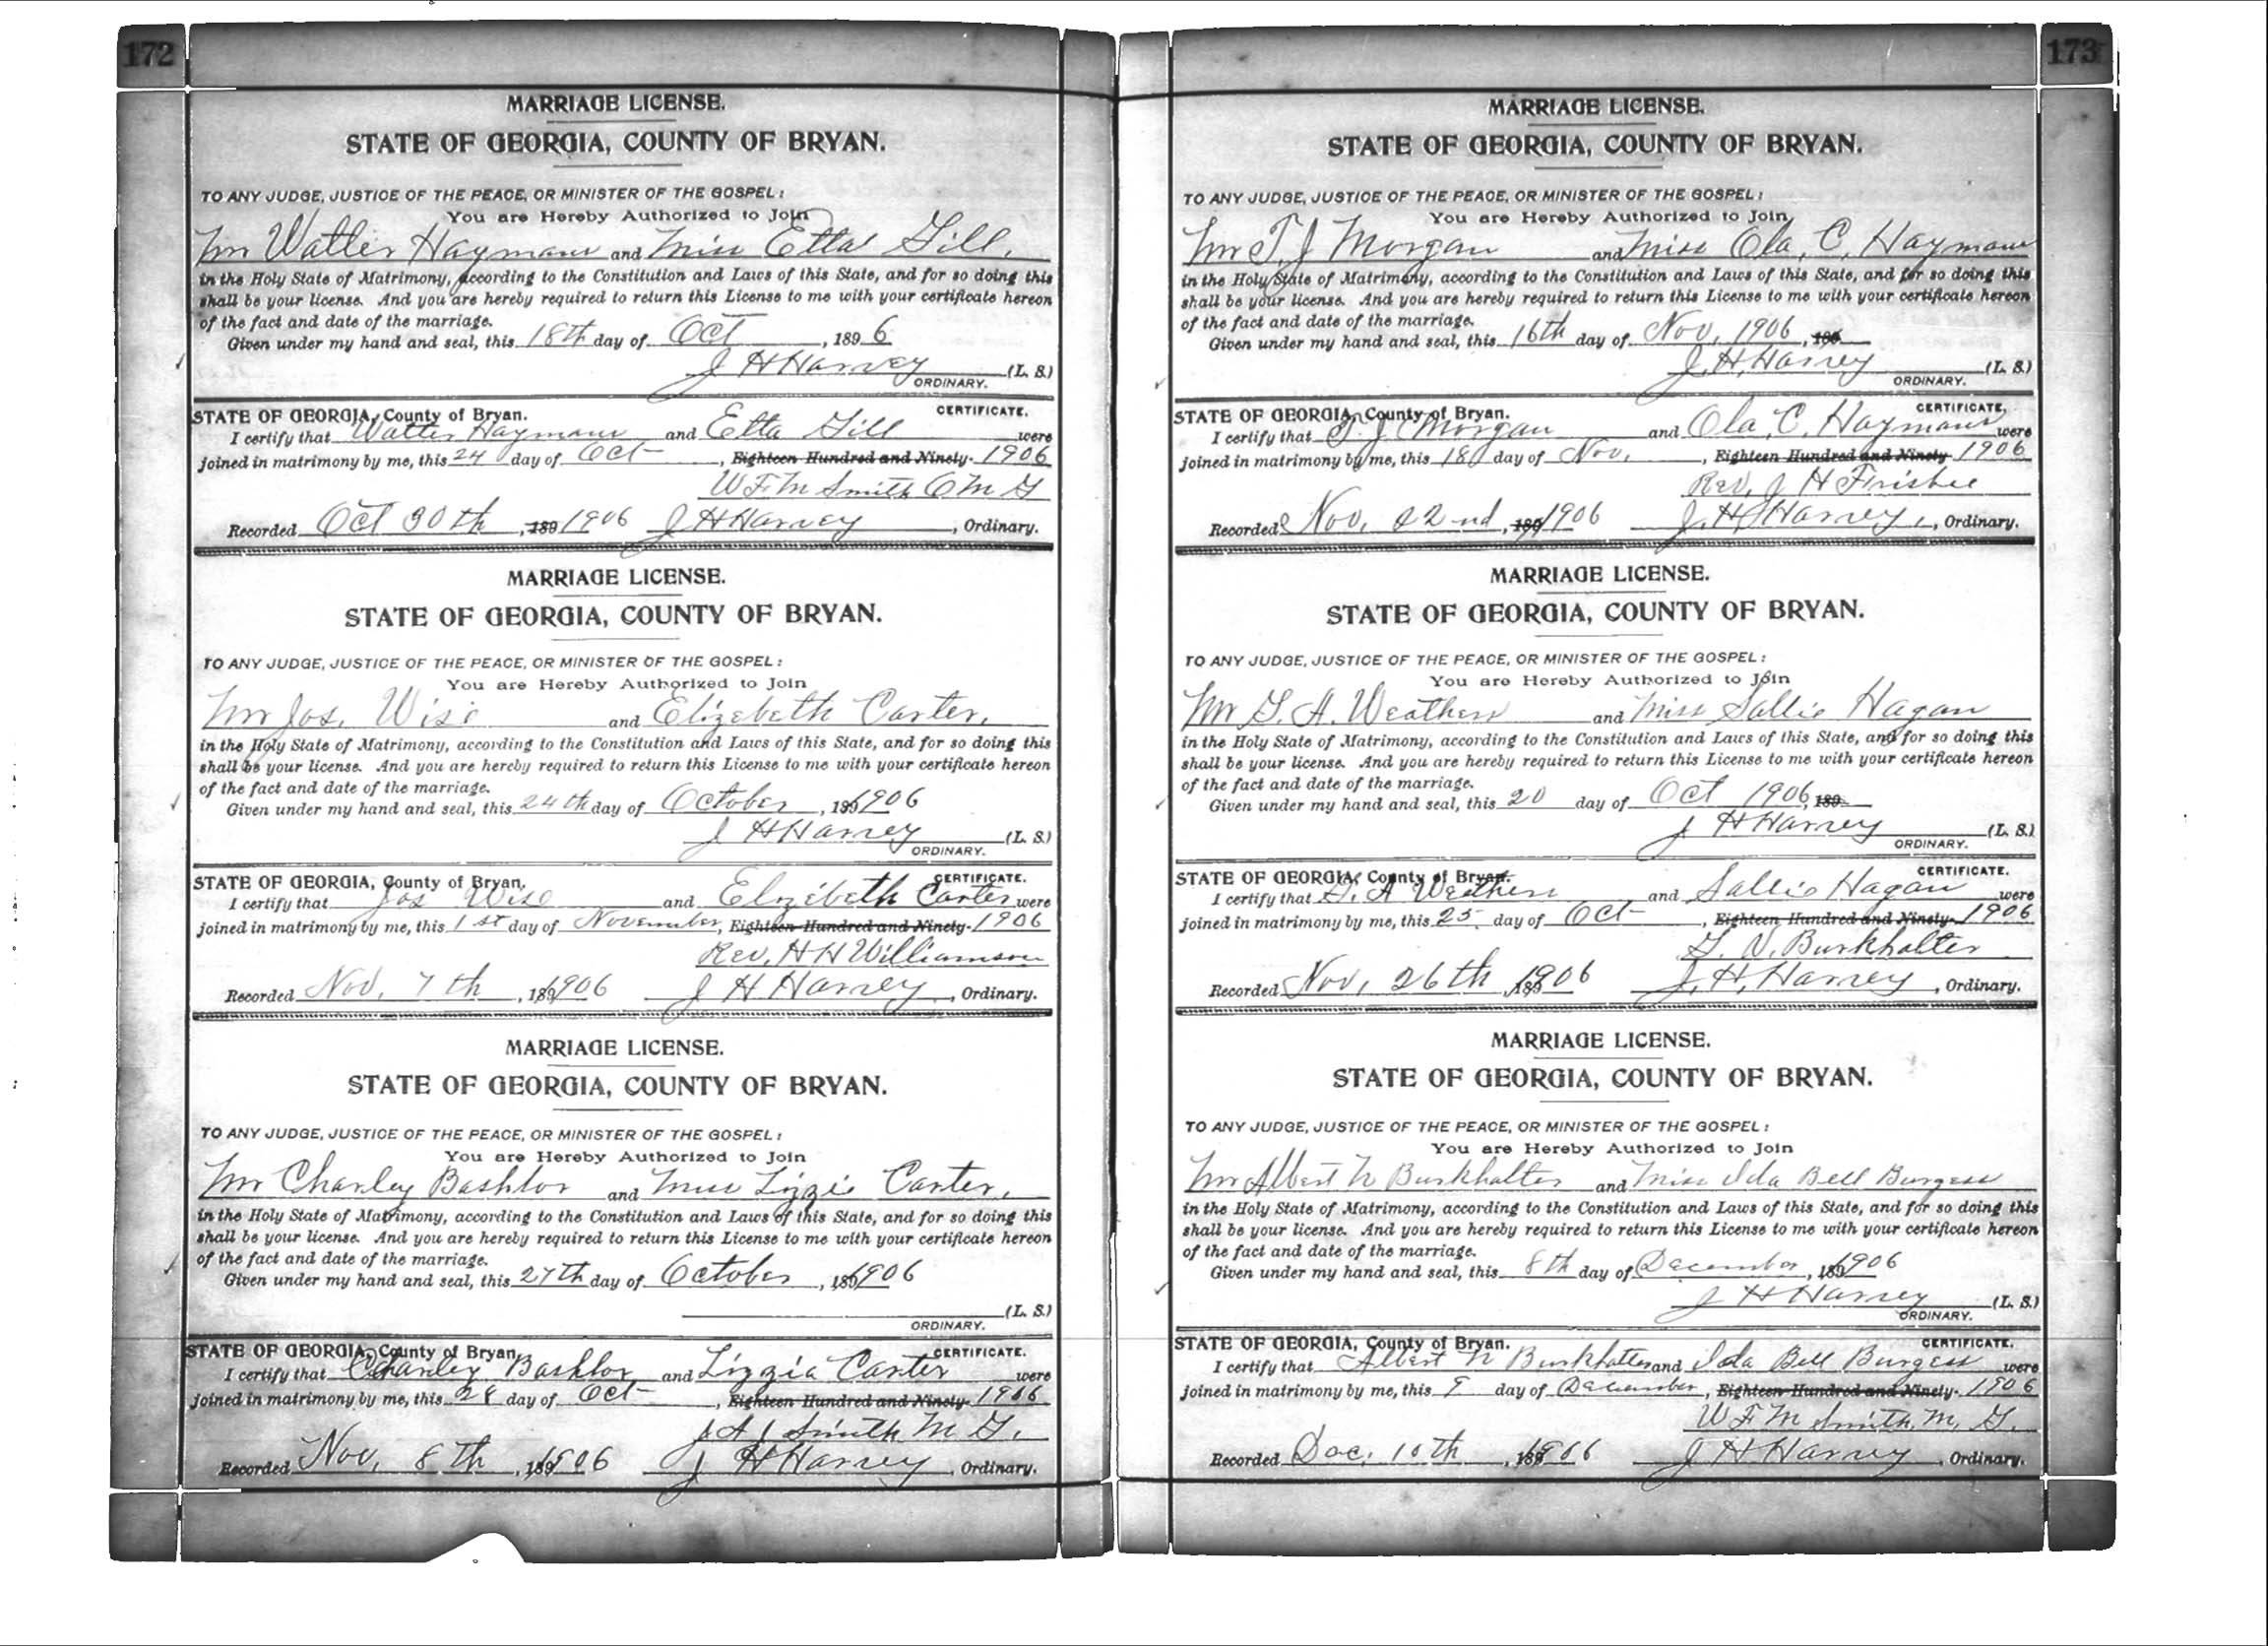 172
MARRIAGE LICENSE.
STATE OF GEORGIA, COUNTY OF BRYAN.
TO ANY JUDGE, JUSTICE OF THE PEACE, OR MINISTER OF THE GOSPEL:
You are Hereby Authorized to Join
Mr Walter Haymans and Miss Etta Gill,
in the Holy State of Matrimony, according to the Constitution and Laws of this State, and for so doing this
shall be your license. And you are hereby required to return this License to me with your certificate hereon
of the fact and date of the marriage.
Given under my hand and seal, this 18th day of Oct , 1896
J H Harvey (L. S.)
ORDINARY.
STATE OF GEORGIA, County of Bryan. CERTIFICATE.
I certify that Walter Haymans and Etta Gill were
joined in matrimony by me, this 24 day of Oct , Eighteen Hundred and Ninety- 1906
W F M Smith O M G
Recorded Oct 30th , 189 1906 J H Harvey , Ordinary.
MARRIAGE LICENSE.
STATE OF GEORGIA, COUNTY OF BRYAN.
TO ANY JUDGE, JUSTICE OF THE PEACE, OR MINISTER OF THE GOSPEL:
You are Hereby Authorized to Join
Mr Jos. Wise and Elizebeth Carter,
in the Holy State of Matrimony, according to the Constitution and Laws of this State, and for so doing this
shall be your license. And you are hereby required to return this License to me with your certificate hereon
of the fact and date of the marriage.
Given under my hand and seal, this 24th day of October , 189 1906
J H Harvey (L. S.)
ORDINARY.
STATE OF GEORGIA, County of Bryan. CERTIFICATE.
I certify that Jos Wise and Elizebeth Carter were
joined in matrimony by me, this 1st day of November, Eighteen Hundred and Ninety- 1906
Rev. H H Williamson
Recorded Nov. 7th , 189 1906 J H Harvey , Ordinary.
MARRIAGE LICENSE.
STATE OF GEORGIA, COUNTY OF BRYAN.
TO ANY JUDGE, JUSTICE OF THE PEACE, OR MINISTER OF THE GOSPEL:
You are Hereby Authorized to Join
Mr Charley Bashlor and Miss Lizzie Carter,
in the Holy State of Matrimony, according to the Constitution and Laws of this State, and for so doing this
shall be your license. And you are hereby required to return this License to me with your certificate hereon
of the fact and date of the marriage.
Given under my hand and seal, this 27th day of October , 189 1906
(L. S.)
ORDINARY.
STATE OF GEORGIA, County of Bryan. CERTIFICATE.
I certify that Charley Bashlor and Lizzia Carter were
joined in matrimony by me, this 28 day of Oct , Eighteen Hundred and Ninety- 1906
J A J Smith M G.
Recorded Nov. 8th , 189 1906 J H Harvey , Ordinary.
173
MARRIAGE LICENSE.
STATE OF GEORGIA, COUNTY OF BRYAN.
TO ANY JUDGE, JUSTICE OF THE PEACE, OR MINISTER OF THE GOSPEL:
You are Hereby Authorized to Join
Mr T. J Morgan and Miss Ola, C. Haymans
in the Holy State of Matrimony, according to the Constitution and Laws of this State, and for so doing this
shall be your license. And you are hereby required to return this License to me with your certificate hereon
of the fact and date of the marriage.
Given under my hand and seal, this 16th day of Nov, 1906 , 189
J. H. Harvey (L. S.)
ORDINARY.
STATE OF GEORGIA, County of Bryan. CERTIFICATE.
I certify that T. J Morgan and Ola, C. Haymans were
joined in matrimony by me, this 18 day of Nov. , Eighteen Hundred and Ninety 1906
Rev. J H Frisbee
Recorded Nov. 22nd , 189 1906 J. H. Harvey, , Ordinary.
MARRIAGE LICENSE.
STATE OF GEORGIA, COUNTY OF BRYAN.
TO ANY JUDGE, JUSTICE OF THE PEACE, OR MINISTER OF THE GOSPEL:
You are Hereby Authorized to Join
Mr G. A. Weathers and Miss Sallie Hagan
in the Holy State of Matrimony, according to the Constitution and Laws of this State, and for so doing this
shall be your license. And you are hereby required to return this License to me with your certificate hereon
of the fact and date of the marriage.
Given under my hand and seal, this 20 day of Oct 1906, 189
J H Harvey (L. S.)
ORDINARY.
STATE OF GEORGIA, County of Bryan. CERTIFICATE.
I certify that G. A Weathers and Sallie Hagan were
joined in matrimony by me, this 25 day of Oct , Eighteen Hundred and Ninety- 1906
Burkhalter
Recorded Nov, 26th , 189 1906 J. H. Harvey , Ordinary.
MARRIAGE LICENSE.
STATE OF GEORGIA, COUNTY OF BRYAN.
TO ANY JUDGE, JUSTICE OF THE PEACE, OR MINISTER OF THE GOSPEL:
You are Hereby Authorized to Join
Mr Albert N Burkhalter and Miss Ida Bell Burgess
in the Holy State of Matrimony, according to the Constitution and Laws of this State, and for so doing this
shall be your license. And you are hereby required to return this License to me with your certificate hereon
of the fact and date of the marriage.
Given under my hand and seal, this 8th day of December , 189 1906
J H Harvey (L. S.)
ORDINARY.
STATE OF GEORGIA, County of Bryan. CERTIFICATE.
I certify that Albert N Burkhalter and Ida Bell Burgess were
joined in matrimony by me, this 9 day of December, Eighteen Hundred and Ninety- 1906
W F M Smith, M, G.
Recorded Dec. 10th , 189 1906 J H Harvey , Ordinary.